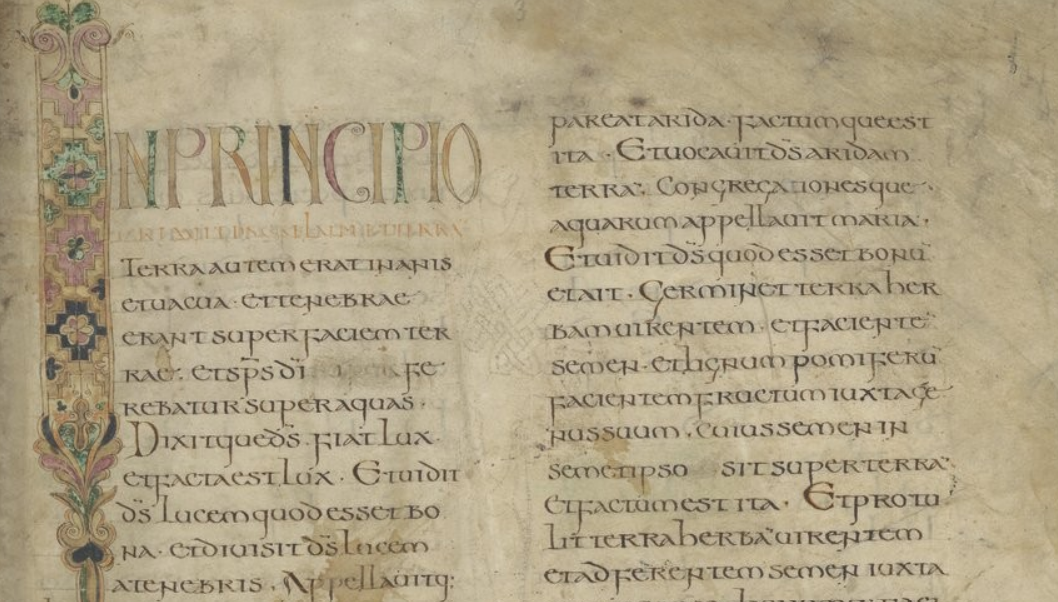 IN PRINCIPIO
TERRA AUTEM ERAT INANIS
ET UACUA · ET TENEBRAE
ERANT SUPER FACIEM TER
RAE · ET SPS DI FE
REBATUR SUPER AQUAS ·
DIXITQUE DS · FIAT LUX ·
ET FACTA EST LUX · ET UIDIT
DS LUCEM QUOD ESSET BO
NA · ET DIUISIT DS LUCEM
A TENEBRIS · APPELLAUITQ:
PAREAT ARIDA · FACTUMQUE EST
ITA · ET UOCAUIT DS ARIDAM
TERRA · CONGREGATIONESQUE
AQUARUM APPELLAUIT MARIA ·
ET UIDIT DS QUOD ESSET BONU
ET AIT · GERMINET TERRA HER
BAM UIRENTEM · ET FACIENTE
SEMEN · ET LIGNUM POMIFERU
FACIENTEM FRUCTUM IUXTA GE
NUS SUUM · CUIUS SEMEN IN
SEMETIPSO SIT SUPER TERRA
ET FACTUM EST ITA · ET PROTU
LIT TERRA HERBA UIRENTEM
ET ADFERENTEM SEMEN IUXTA